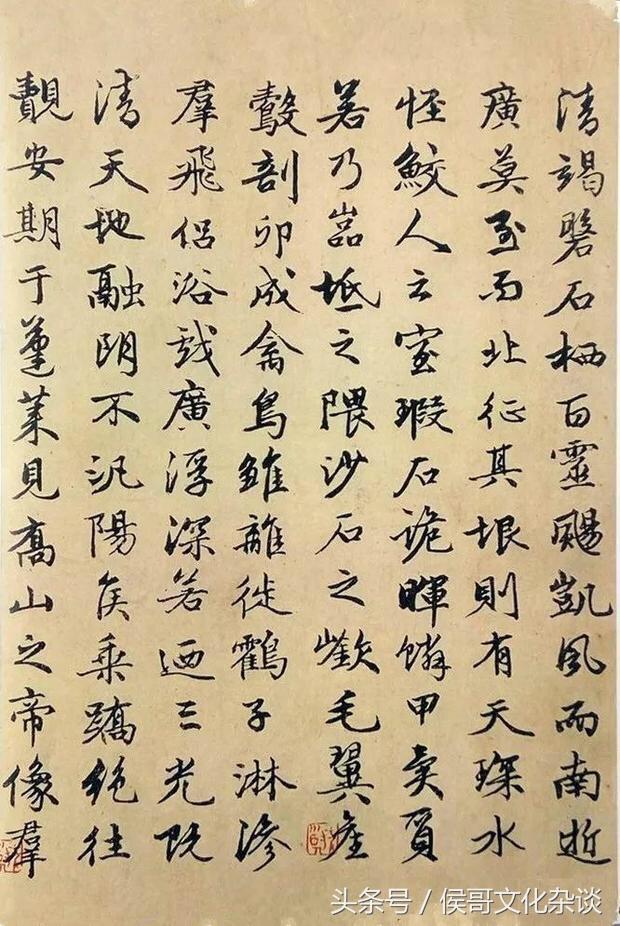 清竭磐石栖百靈颺凱風而南逝
廣莫至而北征其垠則有天琛水
怪鮫人之室瑕石詭暉鱗甲異質
若乃嵓坻之隈沙石之嶔毛翼產
鷇剖卵成禽鳧雛離褷鶴子淋滲
羣飛侶浴戲廣浮深若迺三光既
清天地融朗不汎陽侯乘蹻絕往
覿安期于蓬萊見喬山之帝像羣
头条号 / 侯哥文化杂谈